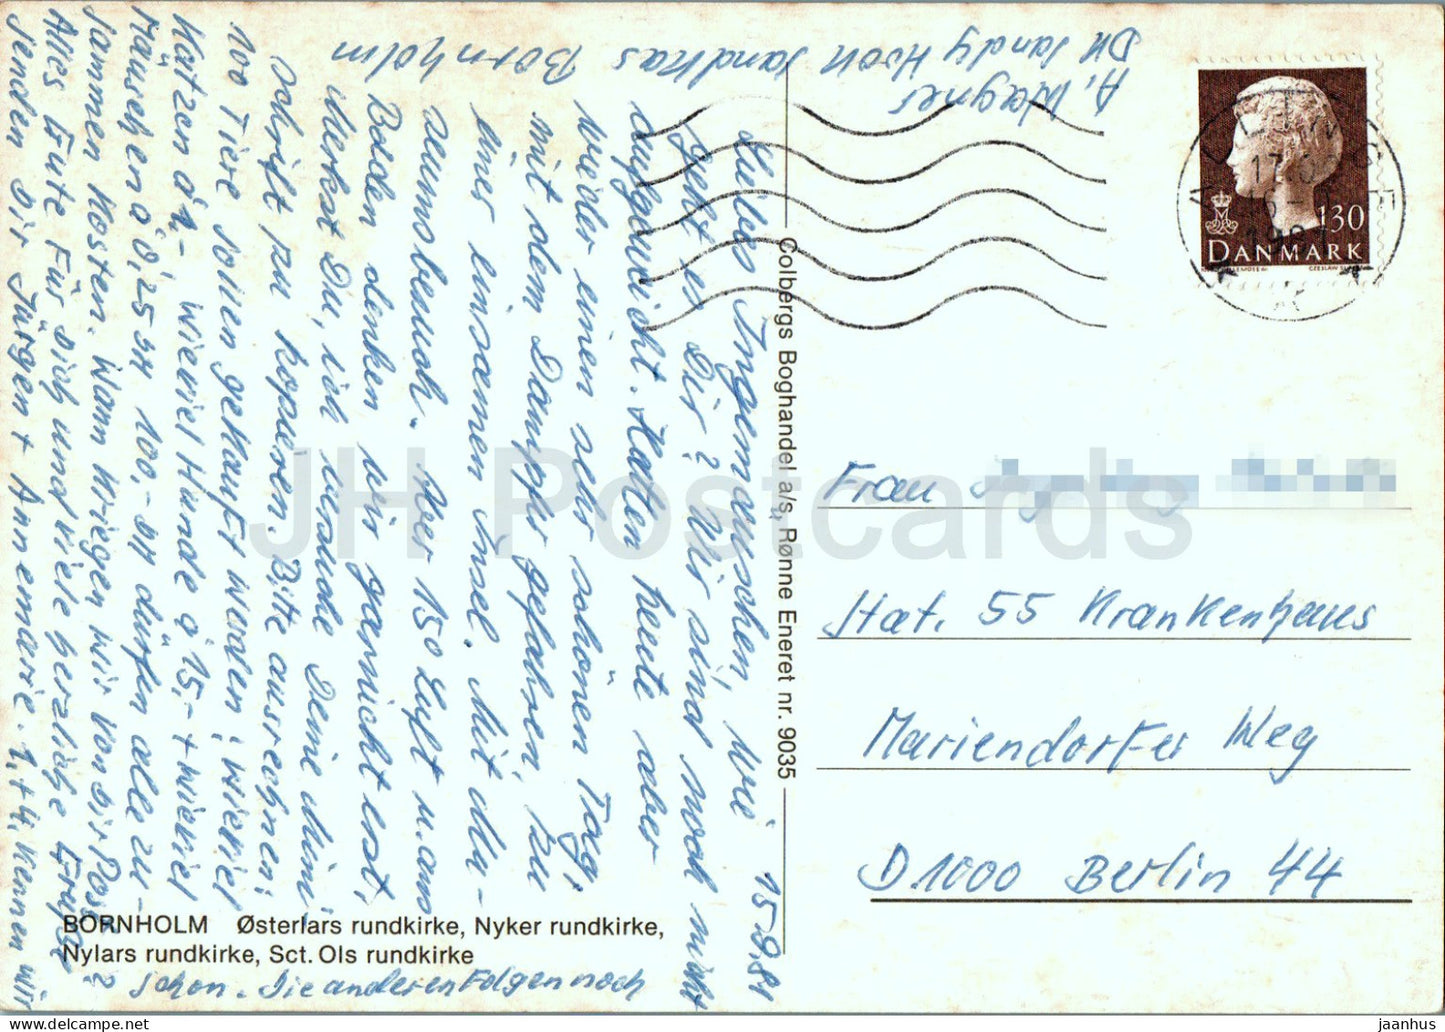 A. Wagner
DK Sandy Hook Sandkas Bornholm
15.9.81
Liebes Ingemauschen, wie
geht es Dir? Wir sind noch nicht
aufgeweicht. Hatten heute aber
wieder einen sehr schönen Tag,
mit dem Dampfer gefahren, zu
einer einsamen Insel. Mit
aber 150 Luft u. am
Boden denken wir garnicht erst.
Merkst Du, ich versuche Deine Mini
Schrift zu kopieren. Bitte ausrechnen:
100 Tiere sollen gekauft werden; wieviel
Katzen á 1,- wieviel Hunde á 15,- + wieviel
Mäuschen á 0,25 100,- dürfen alle zu-
sammen kosten. Wann kriegen wir von Dir Post?
Alles Gute für Dich und viele herzliche Grüße
senden Dir Jürgen + Annemarie. 1,+4, kennen wir
schon. Die anderen folgen noch
BORNHOLM Østerlars rundkirke, Nyker rundkirke,
Nylars rundkirke, Sct. Ols rundkirke
Colbergs Boghandel a/s, Rønne Eneret nr. 9035
130
DANMARK
Frau
Stat. 55 Krankenhaus
Mariendorfer Weg
D 1000 Berlin 44
JH Postcards
delcampe.net
jaanhus